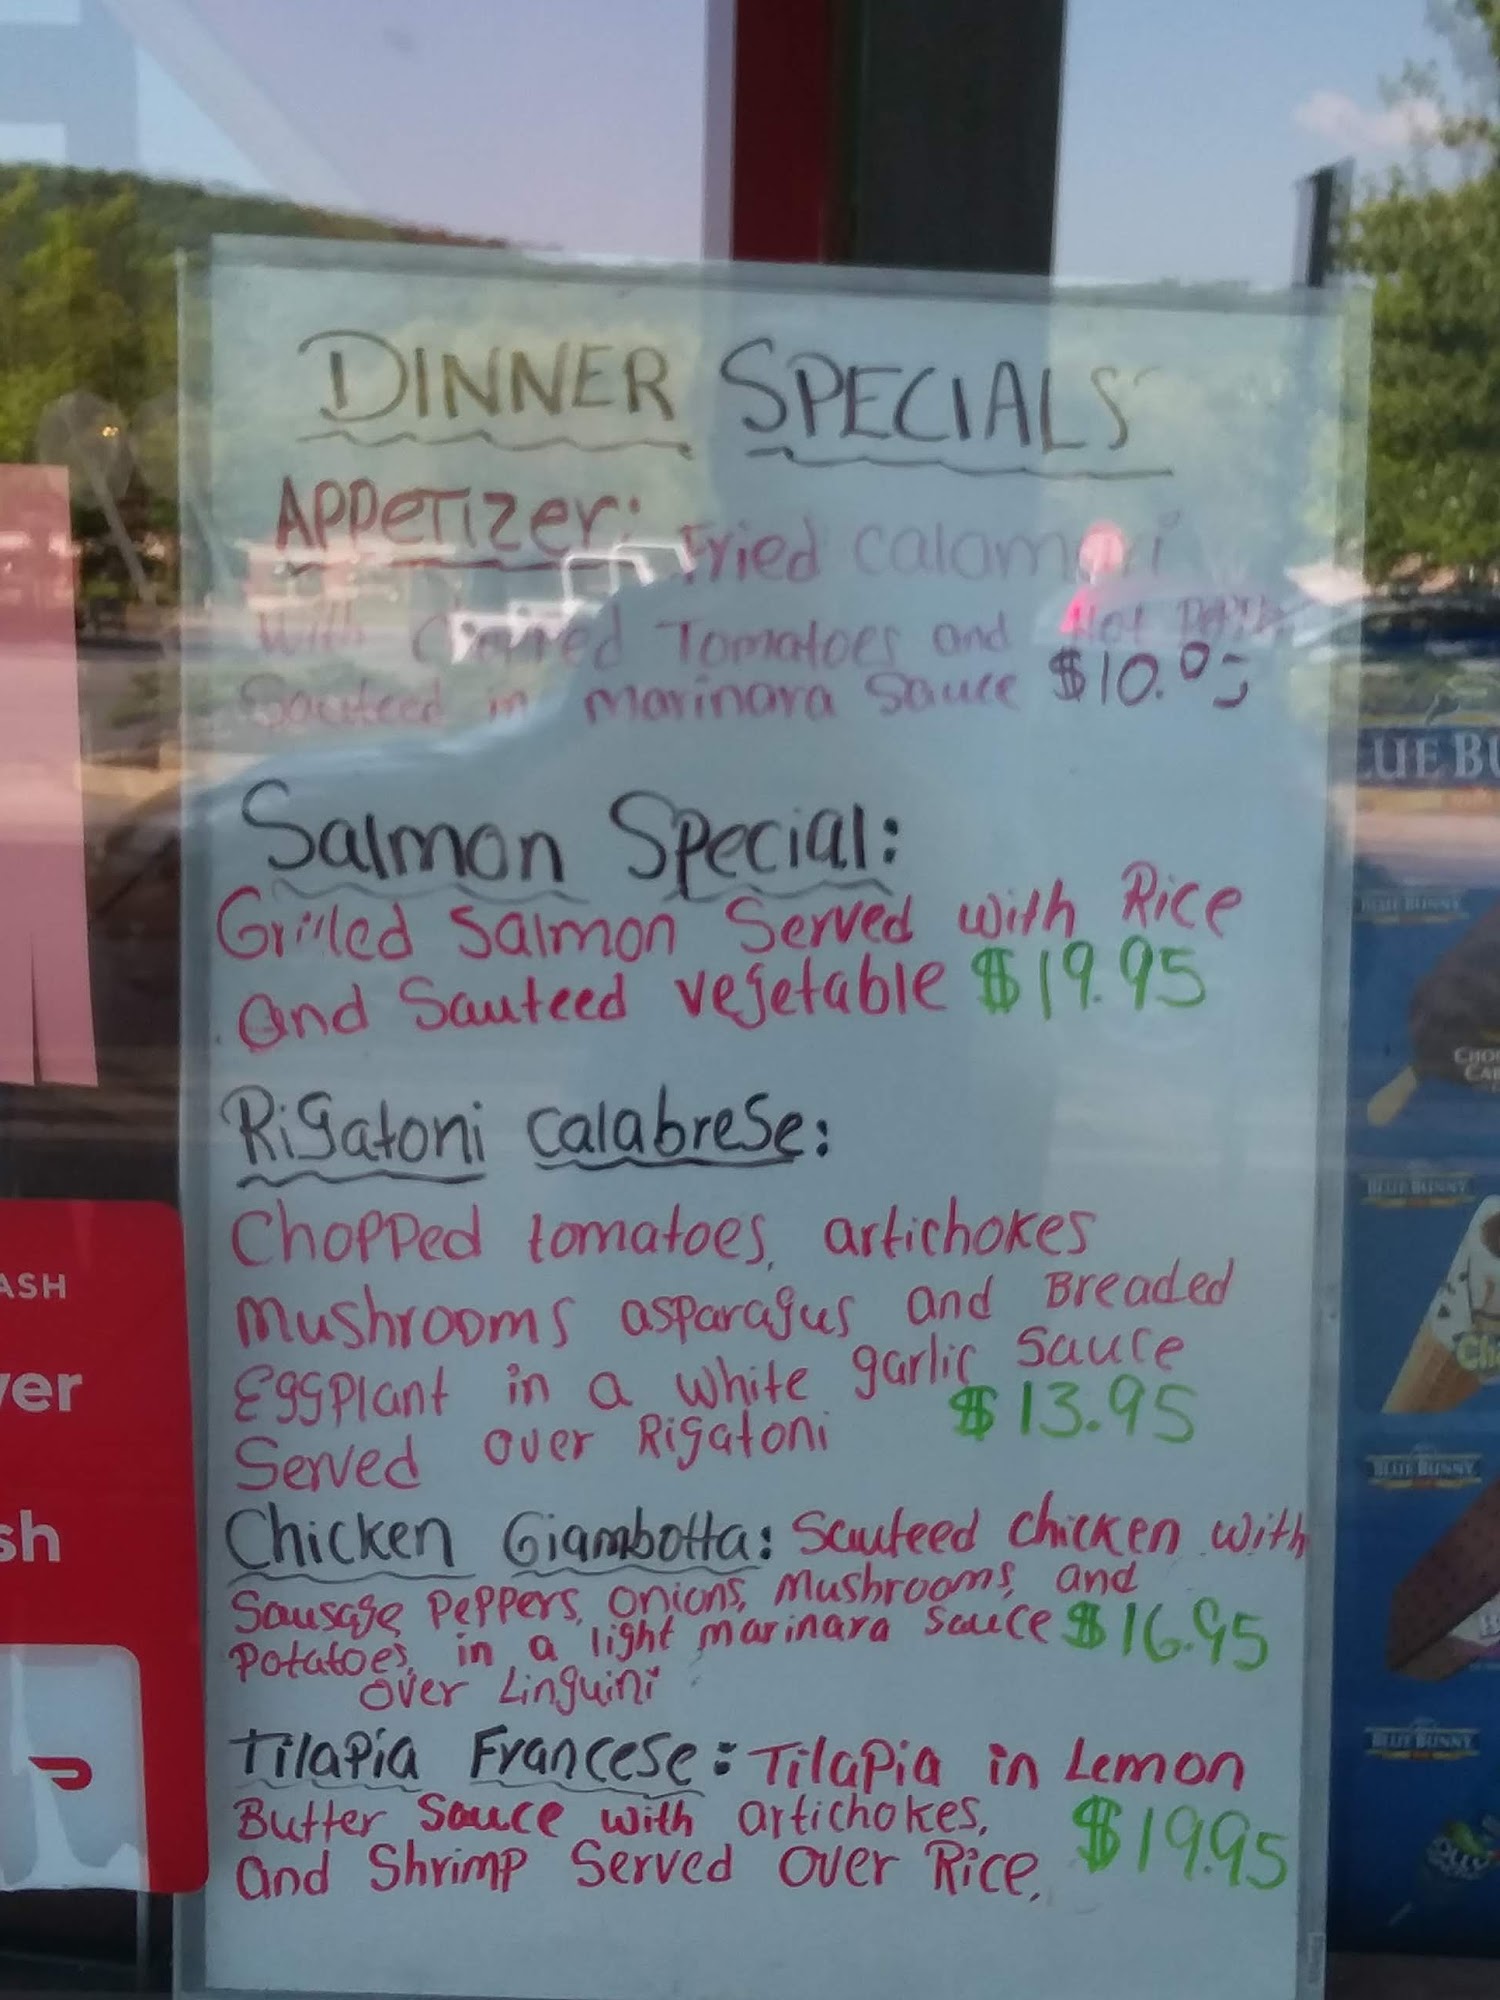 DINNER SPECIALS
APPeTIzer: Fried Calamari
With Chopped Tomatoes and Hot
Sauteed in Marinara Sauce $10.95
Salmon Special:
Grilled Salmon Served with Rice
and Sauteed vegetable $19.95
Rigatoni Calabrese:
Chopped tomatoes, artichokes
Mushrooms asparagus and Breaded
Eggplant in a white garlic Sauce
Served over Rigatoni $13.95
Chicken Giambotta: Sauteed Chicken with
Sausage, Peppers, Onions, Mushrooms, and
Potatoes, in a light Marinara Sauce $16.95
over Linguini
Tilapia Francese: Tilapia in Lemon
Butter Sauce with artichokes,
and Shrimp Served over Rice. $19.95
ASH
ver
sh
LUE BU
BLUE BUNNY
CHO
CA
BLUE BUNNY
Ch
BLUE BUNNY
BLUE BUNNY